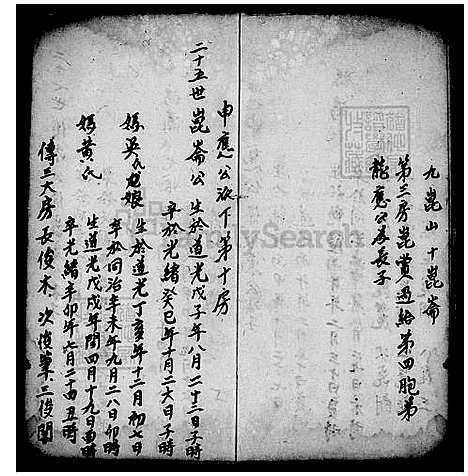 九崑山 十崑崙
第三房崑賞過給第四胞弟
龍應公為長子
申應公派下第十房
二十五世崑崙公 生於道光戊子年八月二十三日子時
卒於光緒癸巳年十月二六日子時
媽吳氏 娘 生於道光丁亥年十二月初七日
卒於同治辛未年九月二八日卯時
媽黃氏 生道光戊戌年閏四月十九日酉時
卒光緒辛卯年七月二十日丑時
傳三大房長俊木 次俊 三俊閣
FamilySearch